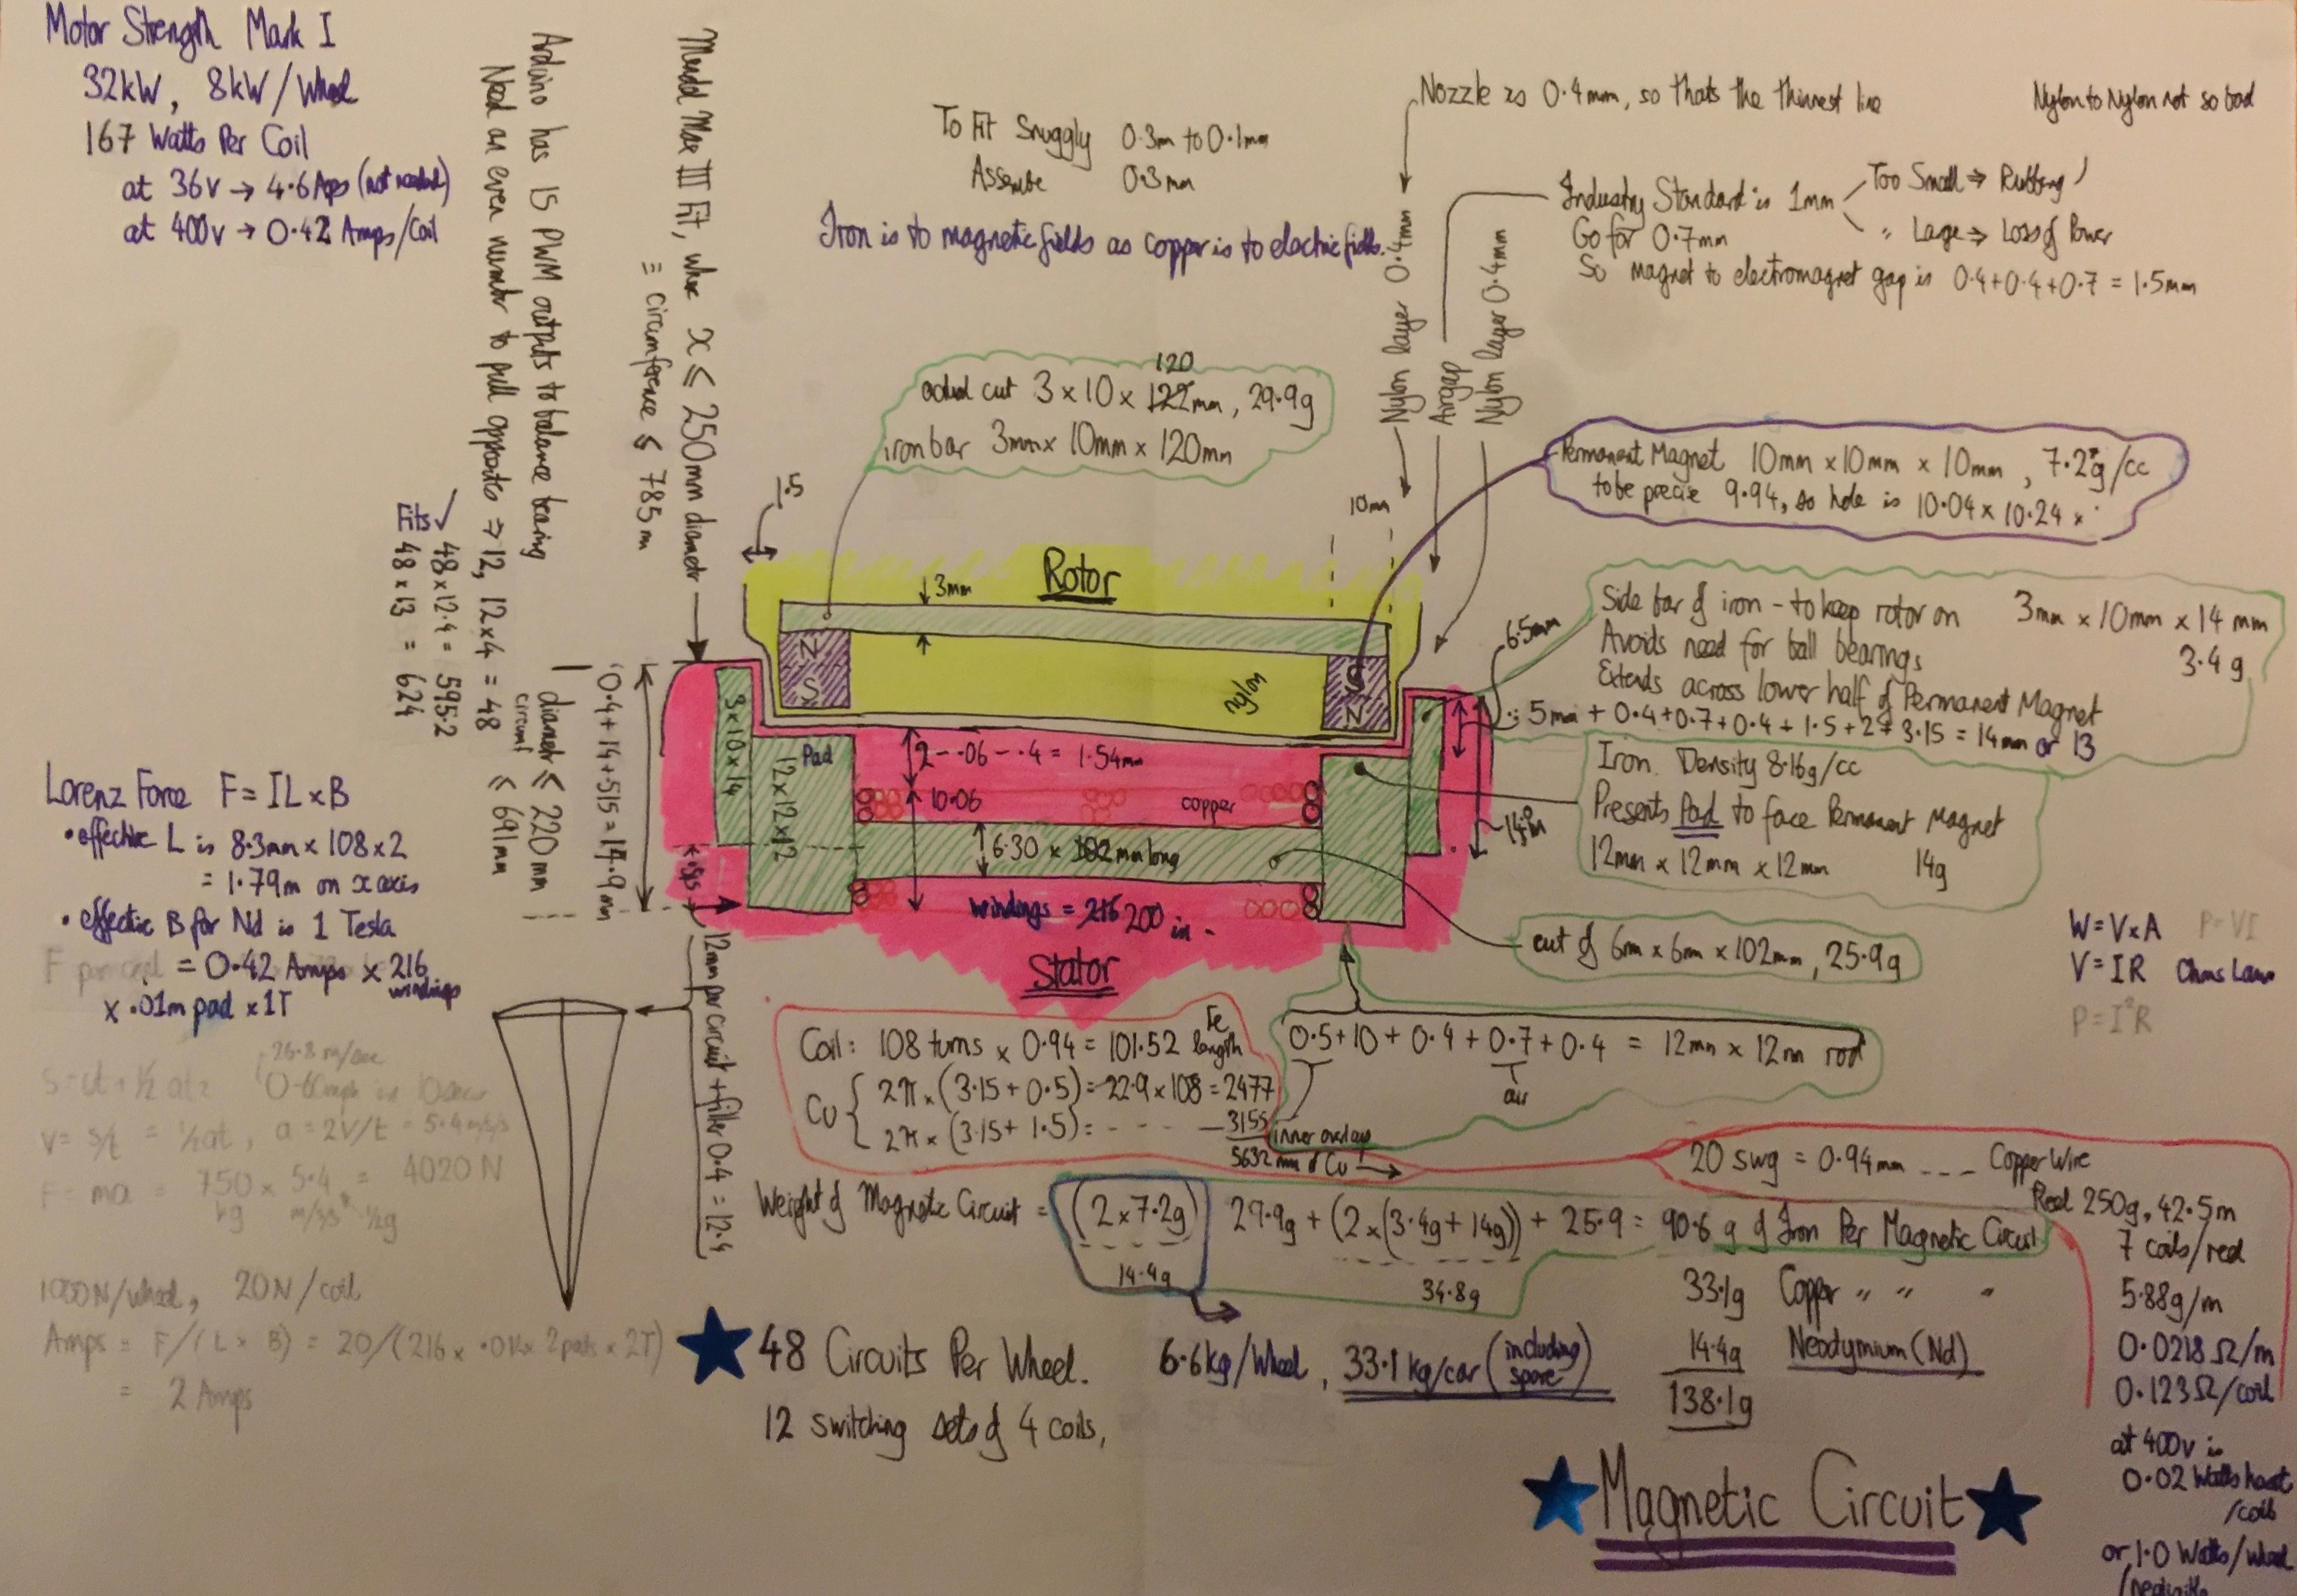 Motor Strength Mark I
32kW, 8kW/Wheel
167 Watts Per Coil
at 36v → 4.6 Aps (not needed)
at 400v → 0.42 Amps/Coil
Arduino has 15 PWM outputs to balance bearing
Need an even number to pull opposites ⇒ 12, 12×4 = 48
Fits ✓
48×12.4 = 595.2
48×13 = 624
Mendel Max III Fit, where x ≤ 250mm diameter
≡ circumference ≤ 785m
diameter ≤ 220mm
circumf ≤ 691mm
To Fit Snuggly 0.3m to 0.1mm
Assembe 0.3mm
Iron is to magnetic fields as copper is to electric fields.
Nozzle is 0.4mm, so thats the thinnest line
Nylon to Nylon not so bad
Industry Standard is 1mm
Too Small ⇒ Rubbing
" Large ⇒ Loss of Power
Go for 0.7mm
So magnet to electromagnet gap is 0.4+0.4+0.7 = 1.5mm
Nylon layer 0.4mm
Airgap
Nylon layer 0.4mm
120
actual cut 3×10×122mm, 29.9g
iron bar 3mm×10mm×120mm
Permanent Magnet 10mm×10mm×10mm, 7.2g/cc
to be precise 9.94, so hole is 10.04×10.24×
1.5
10mm
Rotor
3mm
N
S
S
N
nylon
6.5mm
Side bar of iron - to keep rotor on 3mm×10mm×14mm
Avoids need for ball bearings 3.4g
Extends across lower half of Permanent Magnet
∴ 5mm + 0.4+0.7+0.4+1.5+2+3.15 = 14mm or 13
Iron. Density 8.16g/cc
Presents Pad to face Permanent Magnet
12mm×12mm×12mm 14g
0.4+14+.515=14.9m
3×10×14
Pad
12×12×12
2-.06-.4 = 1.54mm
10.06
copper
6.30 × 102mm long
windings = 216 200 in -
14m
Stator
cut of 6m×6m×102mm, 25.9g
12mm per circuit + filler 0.4 = 12.4
Lorenz Force F = IL×B
• effective L is 8.3mm×108×2
= 1.79m on x axis
• effective B for Nd is 1 Tesla
F per coil = 0.42 Amps × 216 windings
× .01m pad × 1T
26.8 m/sec
s = ut + ½at² 0-60mph in 10secs
v = s/t = ½at, a = 2v/t = 5.4m/s/s
F = ma = 750 × 5.4 = 4020N
kg m/s/s ½g
1000N/wheel, 20N/coil
Amps = F/(L×B) = 20/(216×.01×2pads×2T)
= 2 Amps
W = V×A P=VI
V = IR Ohms Law
P = I²R
Coil: 108 turns × 0.94 = 101.52 Fe length
Cu { 2π×(3.15+0.5) = 22.9×108 = 2477
2π×(3.15+1.5) = - - - - 3155
5632mm of Cu →
0.5+10+0.4+0.7+0.4 = 12mm×12m rod
air
inner overlap
20 swg = 0.94mm --- Copper Wire
Reel 250g, 42.5m
7 coils/reel
5.88g/m
0.0218Ω/m
0.123Ω/coil
at 400v is
0.02 Watts heat
/coil
or 1.0 Watts/wheel
Weight of Magnetic Circuit = (2×7.2g) 29.9g + (2×(3.4g+14g)) + 25.9 = 90.6g of Iron Per Magnetic Circuit
14.4g 34.8g
33.1g Copper " " "
14.4g Neodymium (Nd)
138.1g
48 Circuits Per Wheel. 6.6kg/Wheel, 33.1kg/car (including spare)
12 switching sets of 4 coils,
Magnetic Circuit